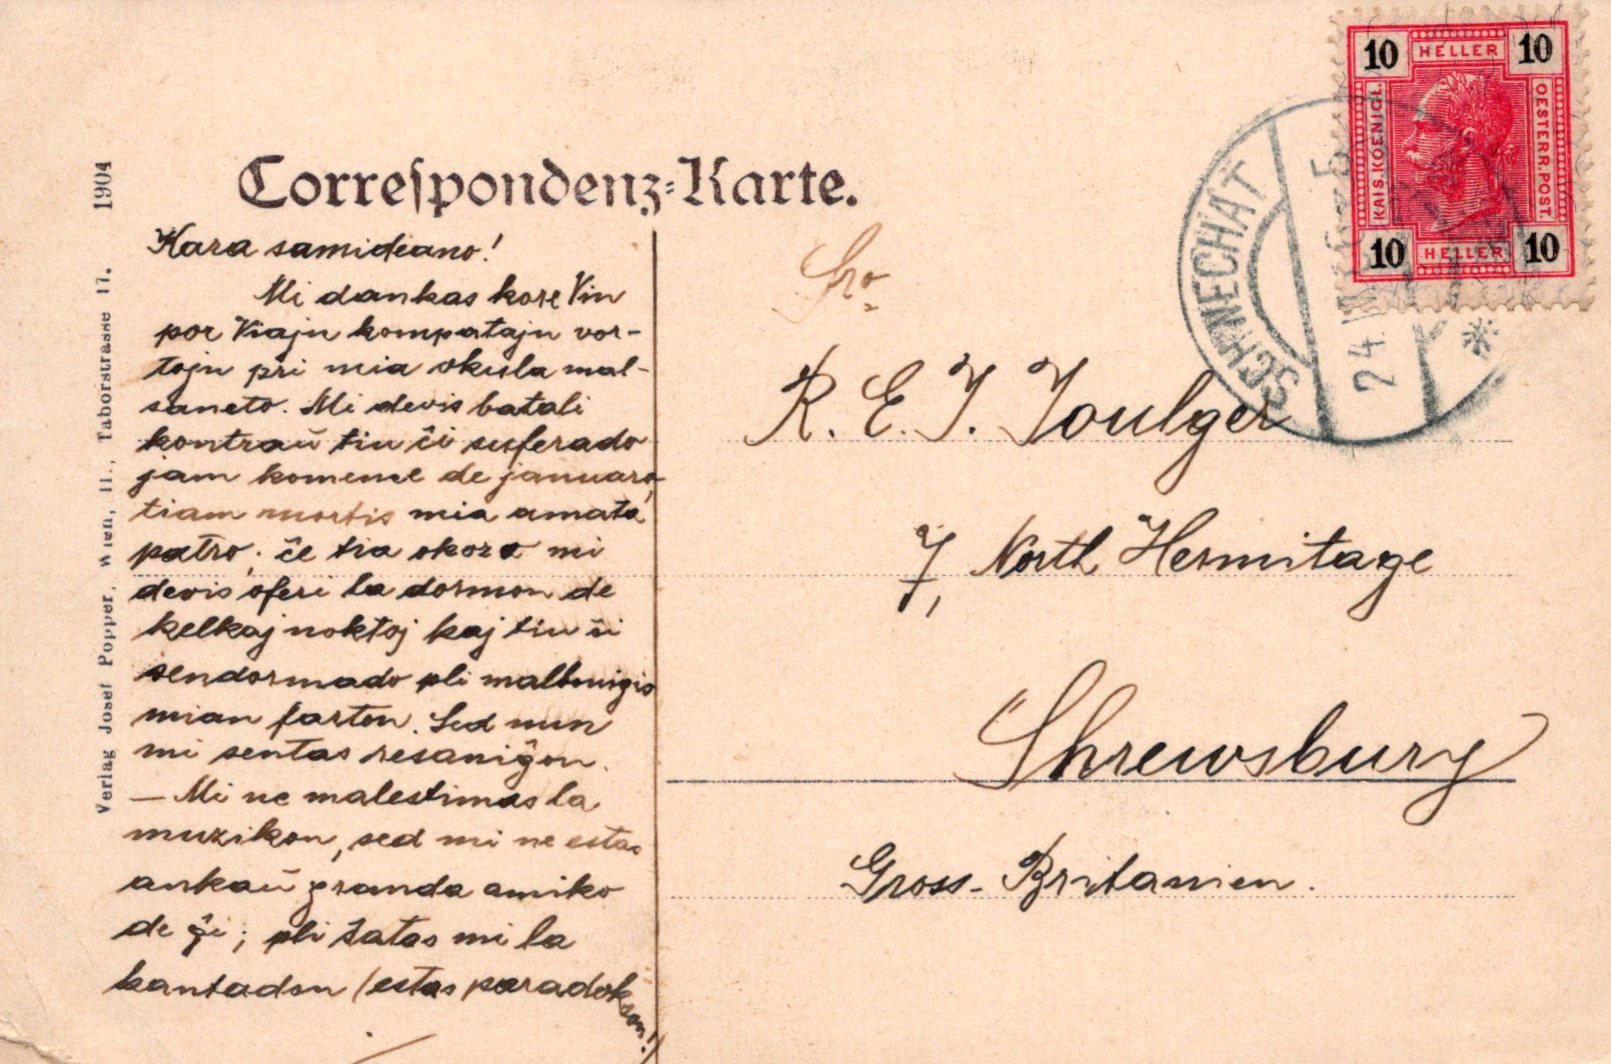 Correspondenz-Karte.
Verlag Josef Popper, Wien, II., Taborstrasse 17. 1904
Kara samideano!
Mi dankas kore Vin
por Viajn kompatajn vor-
tojn pri mia okula mal-
saneto. Mi devis batali
kontraŭ tiu ĉi suferado
jam komence de januaro,
tiam mortis mia amata
patro; ĉe tia okazo mi
devis oferi la dormon de
kelkaj noktoj kaj tiu ĉi
sendormado pli malbonigis
mian farton. Sed nun
mi sentas resaniĝon.
— Mi ne malestimas la
muzikon, sed mi ne estas
ankaŭ granda amiko
de ĝi; pli ŝatas mi la
kantadon (estas paradokson!)
10 HELLER 10
KAIS. KOENIGL.
OESTERR. POST.
10 HELLER 10
SCHWECHAT
24.
Sro
R. E. J. Toulger
7, North Hermitage
Shrewsbury
Gross-Britanien.